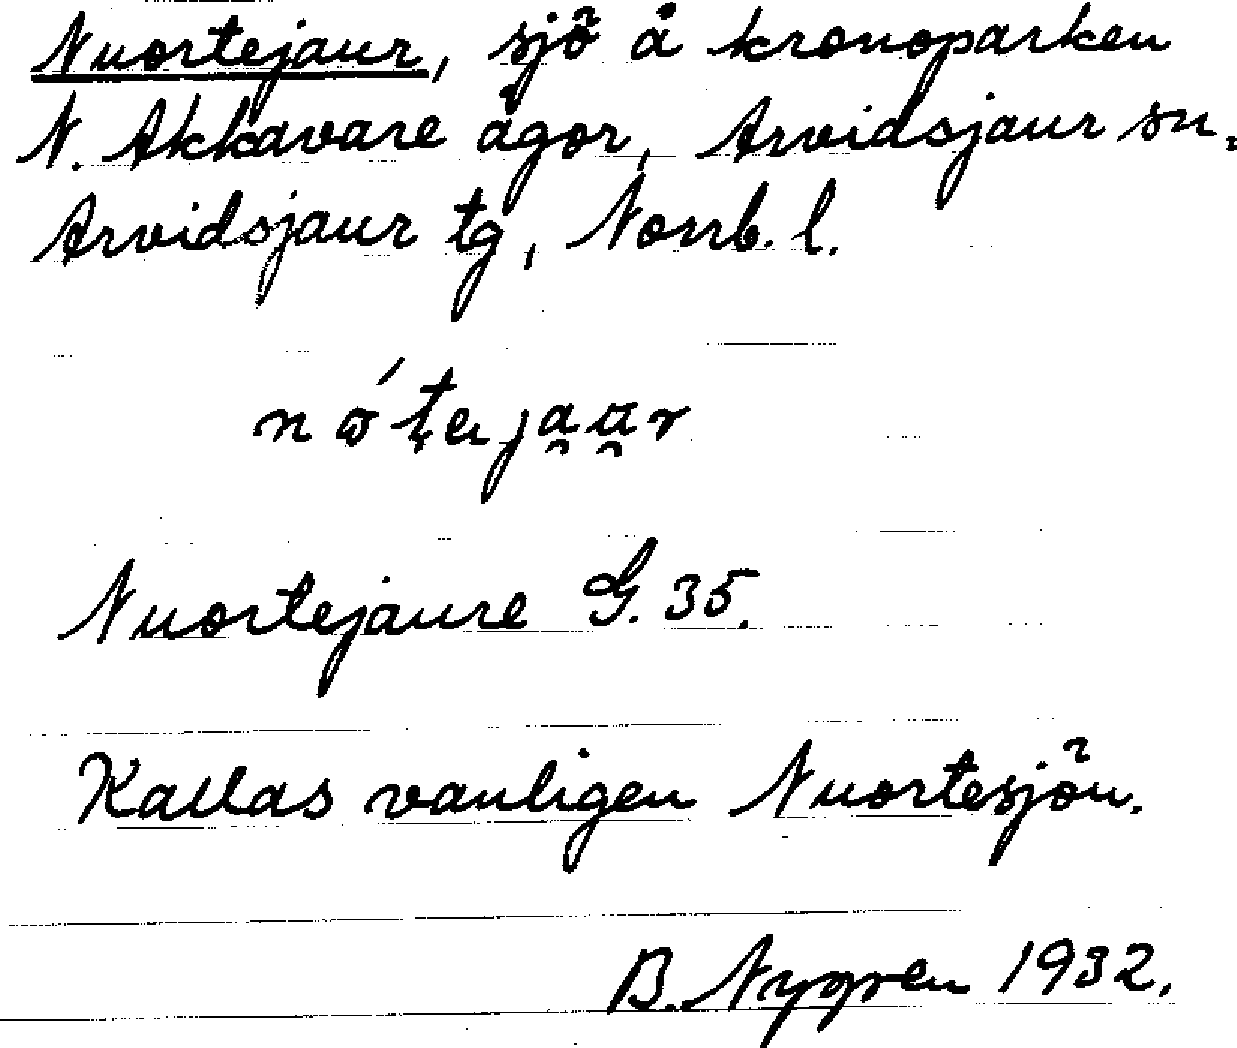 Nuortejaur, sjö å kronoparken
N. Akkavare ägor, Arvidsjaur sn.
Arvidsjaur tg, Norrb. l.
Nuortejaure G. 35.
Kallas vanligen Nuortesjön.
B. Nygren 1932.